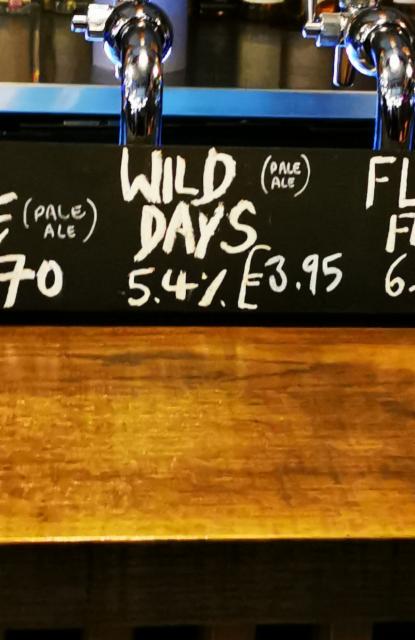 (PALE
ALE)
70
WILD (PALE
ALE)
DAYS
5.4% £3.95
FL
F
6.